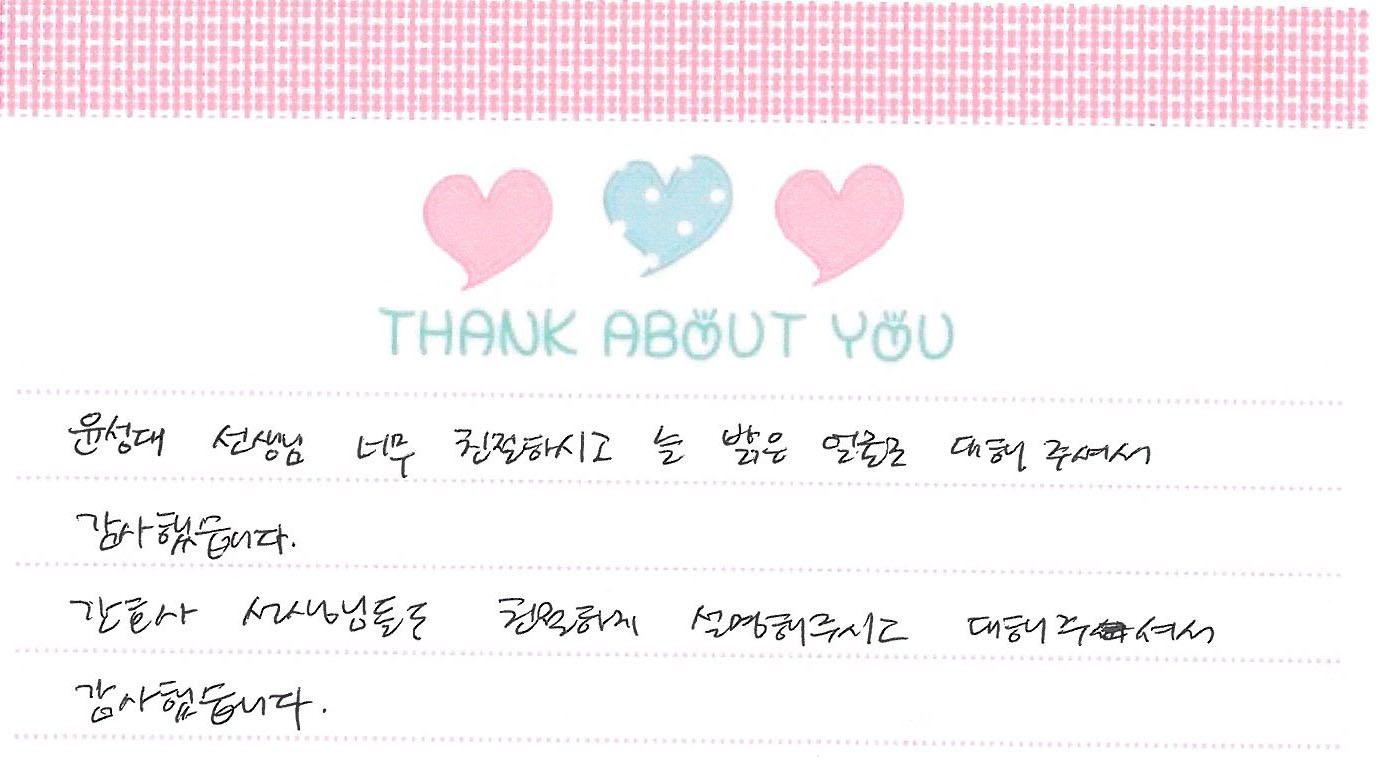 THANK ABOUT YOU
윤성대 선생님 너무 친절하시고 늘 밝은 얼굴로 대해 주셔서
감사했습니다.
간호사 선생님들도 친절하게 설명해주시고 대해주셔서
감사했습니다.